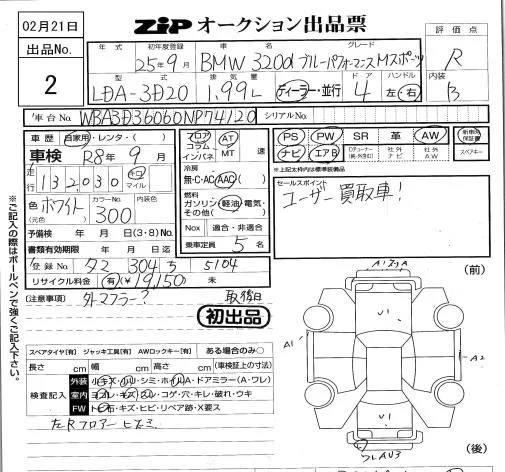 02月21日
ZIP オークション出品票
評価点
出品No.
2
R
年式 初年度登録 車名 グレード
25年9月 BMW 320d ブルーパフォーマンスMスポーツ
型式 排気量 ドア ハンドル 内装
LDA-3D20 1.99L ディーラー・並行 4 左・右 B
車台No. WBA3D36060NP74120 シリアルNo.
車歴 自家用・レンタ・( )
車検 R8年9月
走行 132,030 キロ マイル
色(元色) ホワイト カラーNo. 300 内装色
予備検 年 月 日(3・8)No.
書類有効期限 年 月 日迄
登録No. 304 5104
リサイクル料金 有(¥19,150) 未
フロア コラム インパネ AT MT 速
冷房
無・C・AC・AAC( )
燃料
ガソリン・軽油・電気・その他( )
Nox 適合・非適合
乗車定員 5名
PS PW SR 革 AW 新車時保証書
ナビ エアB Dチューナー(純・外・別口) 社外ナビ 社外AW スペアキー
※上記太枠内は標準装備品
セールスポイント
ユーザー買取車!
(注意事項) 外マフラー? 取後日
初出品
※ご記入の際はボールペンで強くご記入下さい。
スペアタイヤ[有] ジャッキ工具[有] AWロックキー[有] ある場合のみ○
長さ cm 幅 cm 高さ cm (車検証上の寸法)
検査記入
外装 小キズ・凹リ・シミ・ホイルA・ドアミラー(A・ワレ)
室内 ヨゴレ・キズ・スレ・コゲ・穴・キレ・破れ・ウキ
FW トビ石・キズ・ヒビ・リペア跡・X要ス
左Rフロアーヒズミ
(前)
U1
A1
A2
U1
(後)